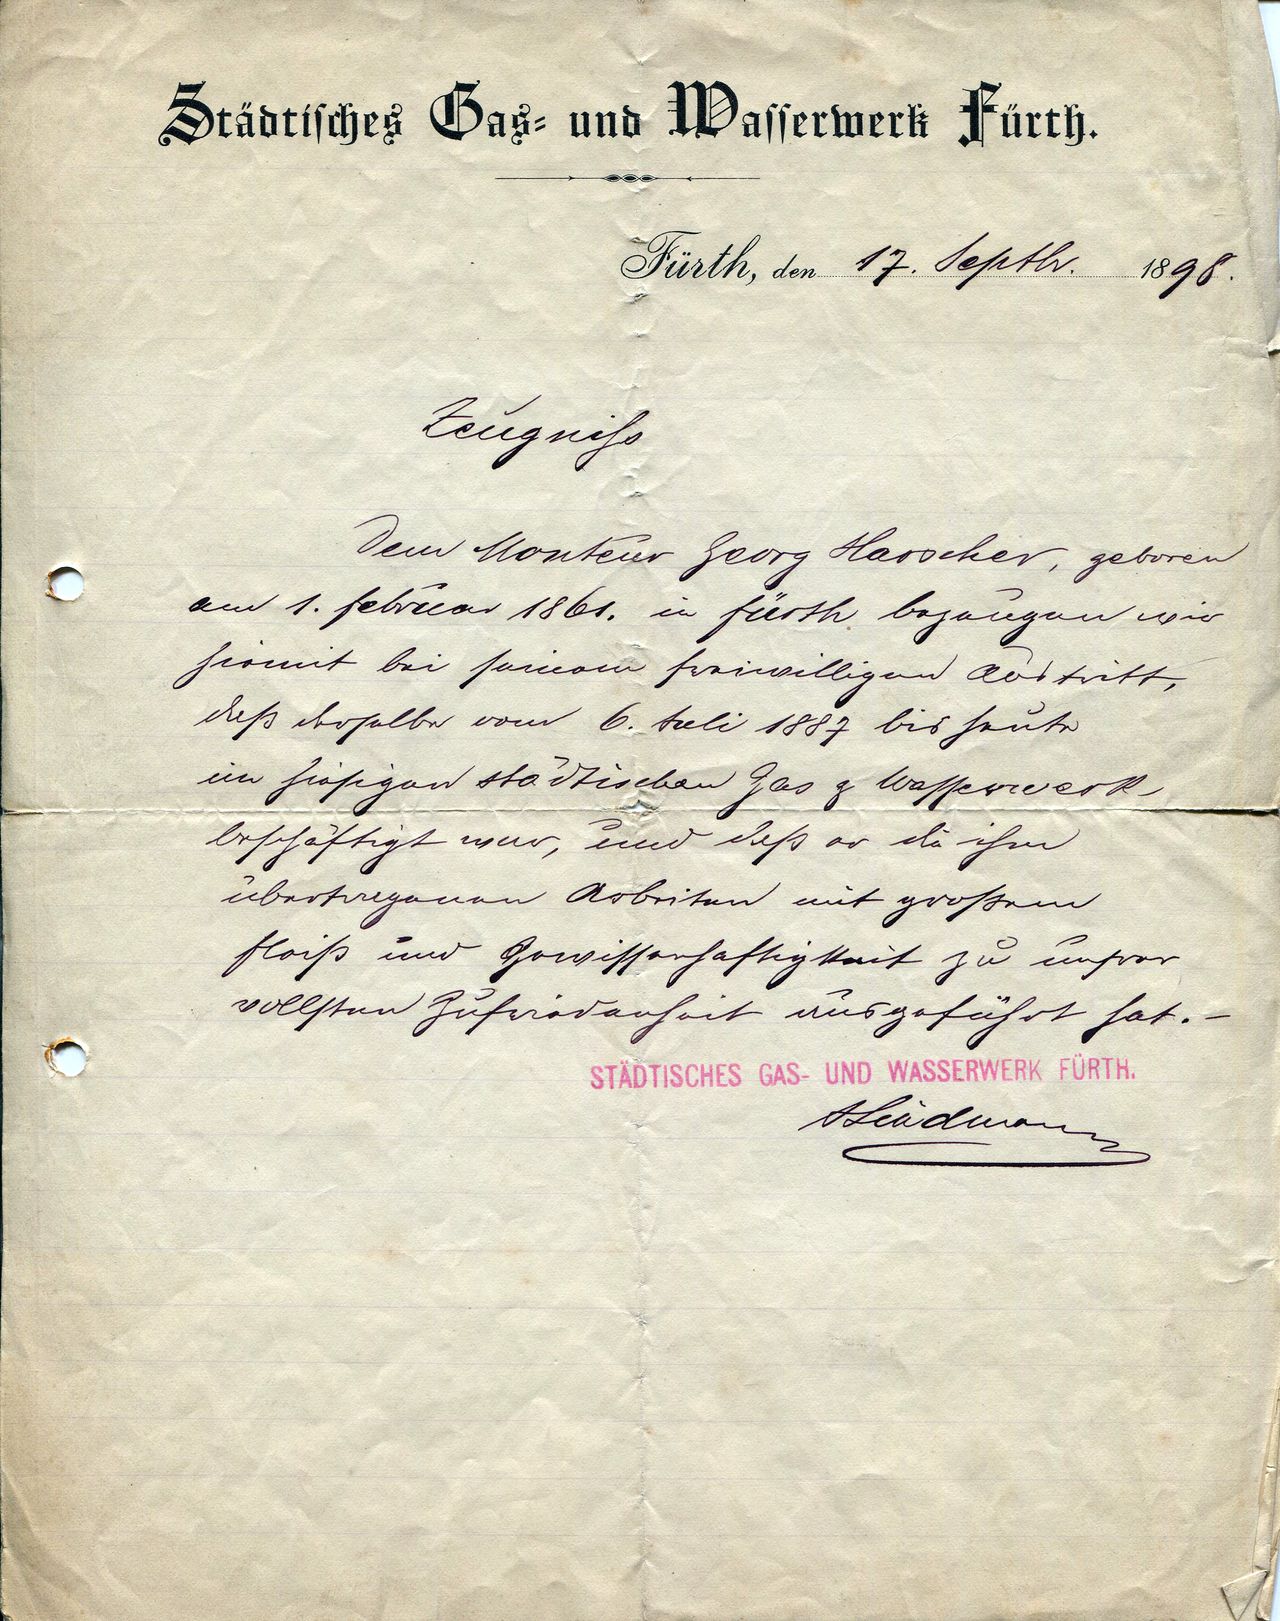 Städtisches Gas- und Wasserwerk Fürth.
Fürth, den 17. Septbr. 1898.
Zeugniß
Dem Monteur Georg Harscher, geboren
am 1. Februar 1861. in Fürth bezeugen wir
hiemit bei seinem freiwilligen Austritt,
daß derselbe vom 6. Juli 1887 bis heute
im hiesigen städtischen Gas & Wasserwerk
beschäftigt war, und daß er die ihm
übertragenen Arbeiten mit großem
Fleiß und Gewissenhaftigkeit zu unserer
vollsten Zufriedenheit ausgeführt hat. -
STÄDTISCHES GAS- UND WASSERWERK FÜRTH.